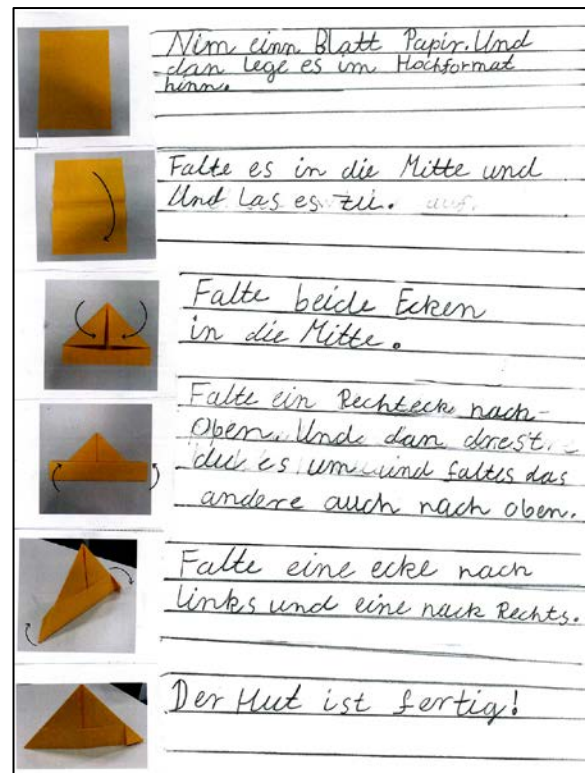 Nim einn Blatt Papir. Und
dan lege es im Hochformat
hinn.
Falte es in die Mitte und
Und las es zu. auf.
Falte beide Ecken
in die Mitte.
Falte ein Rechteck nach-
Oben. Und dan drest
du es um und faltes das
andere auch nach oben.
Falte eine ecke nach
links und eine nach Rechts.
Der Hut ist fertig!